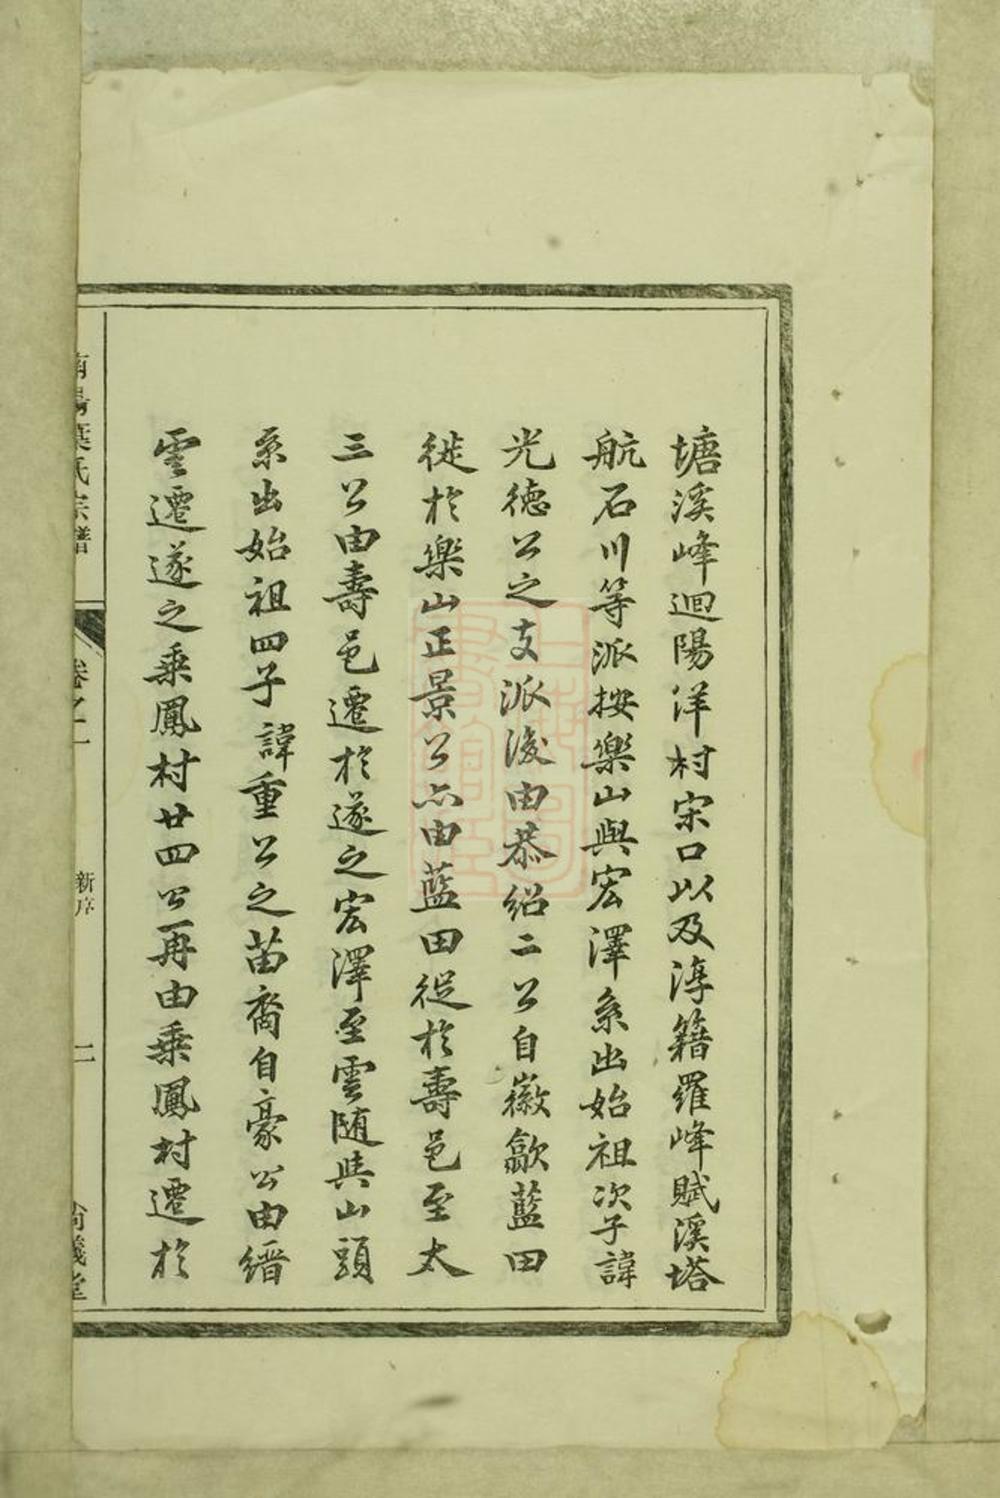 塘溪峰迴陽洋村宋口以及淳籍羅峰賦溪塔
航石川等派按樂山與宏澤系出始祖次子諱
光德公之支派後由恭紹二公自徽歙藍田
徙於樂山正景公亦由藍田從於壽邑至太
三公由壽邑遷於遂之宏澤至雲随與山頭
系出始祖四子諱重公之苗裔自豪公由縉
雲遷遂之乘鳳村廿四公再由乘鳳村遷於
南陽葉氏宗譜
卷之一
新序
二
尚義堂